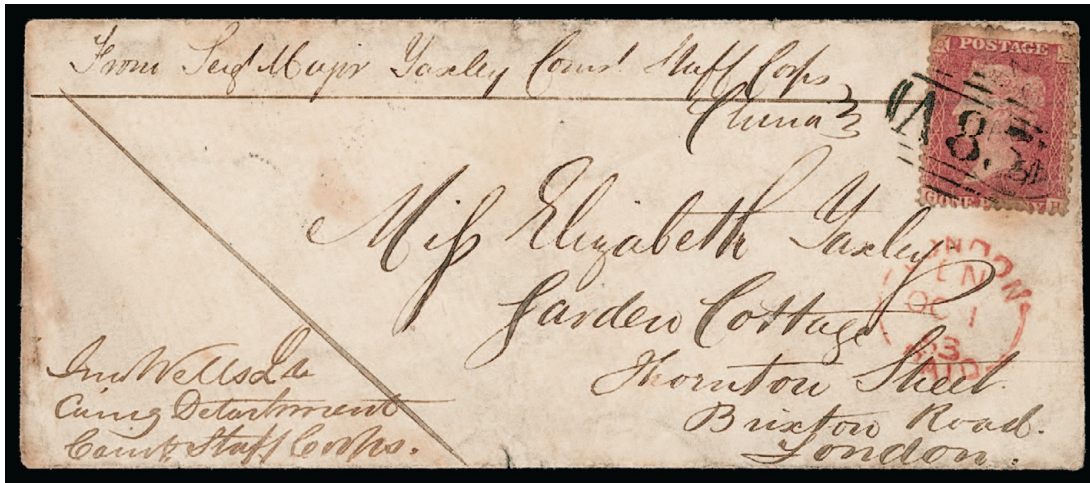 From Serjt Major Yaxley Comst Staff Corps
China
POSTAGE
A 8
G ONE PENNY H
Miss Elizabeth Yaxley
Garden Cottage
Thornton Street
Brixton Road.
London.
LONDON
EN
OC 1
63
PAID
Jno Wells
Comg Detachment
Comst Staff Corps.